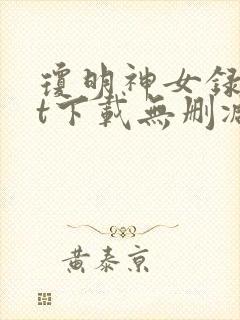 瓊明神女録
t下載無刪減
黃泰京